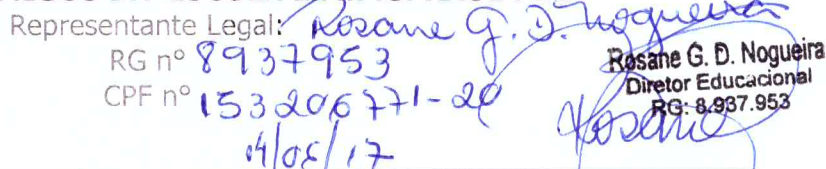 Representante Legal: Rosane G. D. Nogueira
RG nº 8937953
CPF nº 153206771-20
Rosane G. D. Nogueira
Diretor Educacional
RG: 8.937.953
Rosane